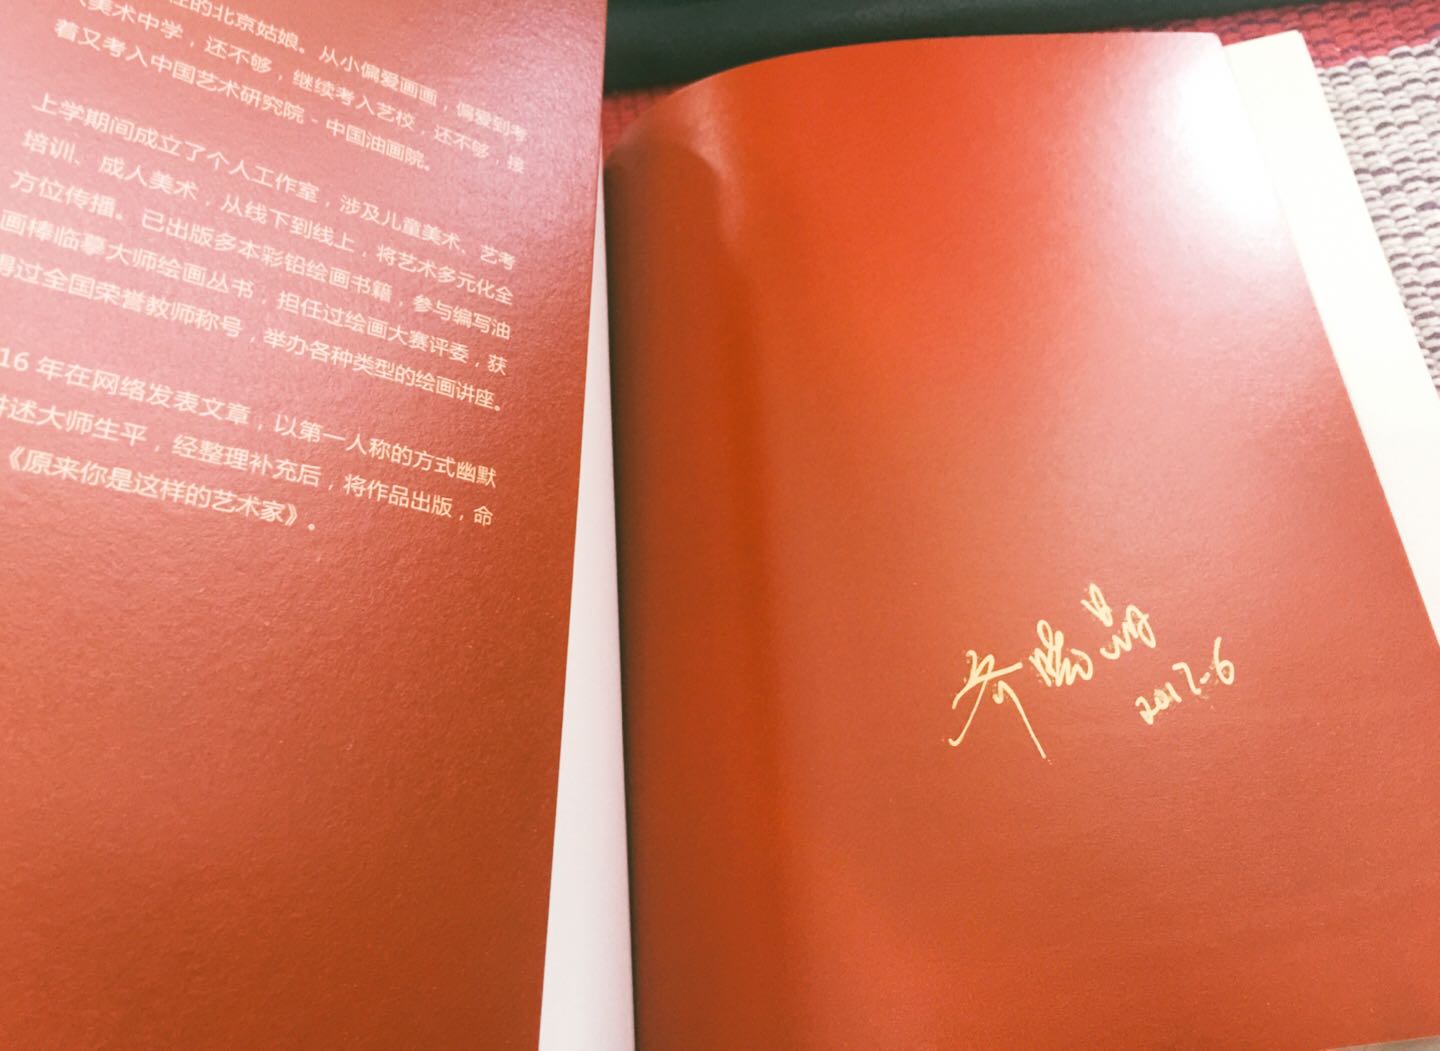 的北京姑娘。从小偏爱画画，偏爱到考
美术中学，还不够，继续考入艺校，还不够，接
着又考入中国艺术研究院 - 中国油画院。
上学期间成立了个人工作室，涉及儿童美术、艺考
培训、成人美术，从线下到线上，将艺术多元化全
方位传播。已出版多本彩铅绘画书籍，参与编写油
画棒临摹大师绘画丛书，担任过绘画大赛评委，获
得过全国荣誉教师称号，举办各种类型的绘画讲座。
16 年在网络发表文章，以第一人称的方式幽默
讲述大师生平，经整理补充后，将作品出版，命
《原来你是这样的艺术家》。
2017-6